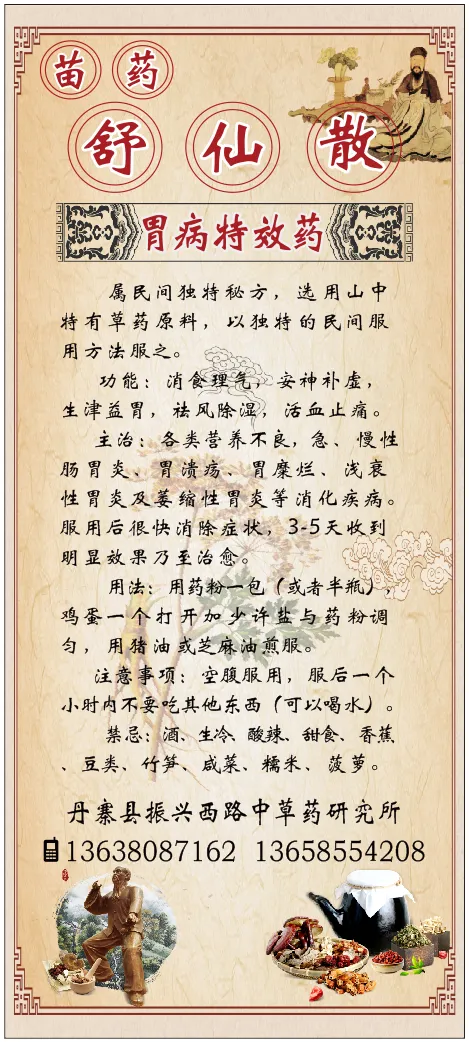 苗药
舒仙散
胃病特效药
属民间独特秘方，选用山中
特有草药原料，以独特的民间服
用方法服之。
功能：消食理气，安神补虚，
生津益胃，祛风除湿，活血止痛。
主治：各类营养不良，急、慢性
肠胃炎、胃溃疡、胃糜烂、浅衰
性胃炎及萎缩性胃炎等消化疾病。
服用后很快消除症状，3-5天收到
明显效果乃至治愈。
用法：用药粉一包（或者半瓶），
鸡蛋一个打开加少许盐与药粉调
匀，用猪油或芝麻油煎服。
注意事项：空腹服用，服后一个
小时内不要吃其他东西（可以喝水）。
禁忌：酒、生冷、酸辣、甜食、香蕉
、豆类、竹笋、咸菜、糯米、菠萝。
丹寨县振兴西路中草药研究所
13638087162 13658554208